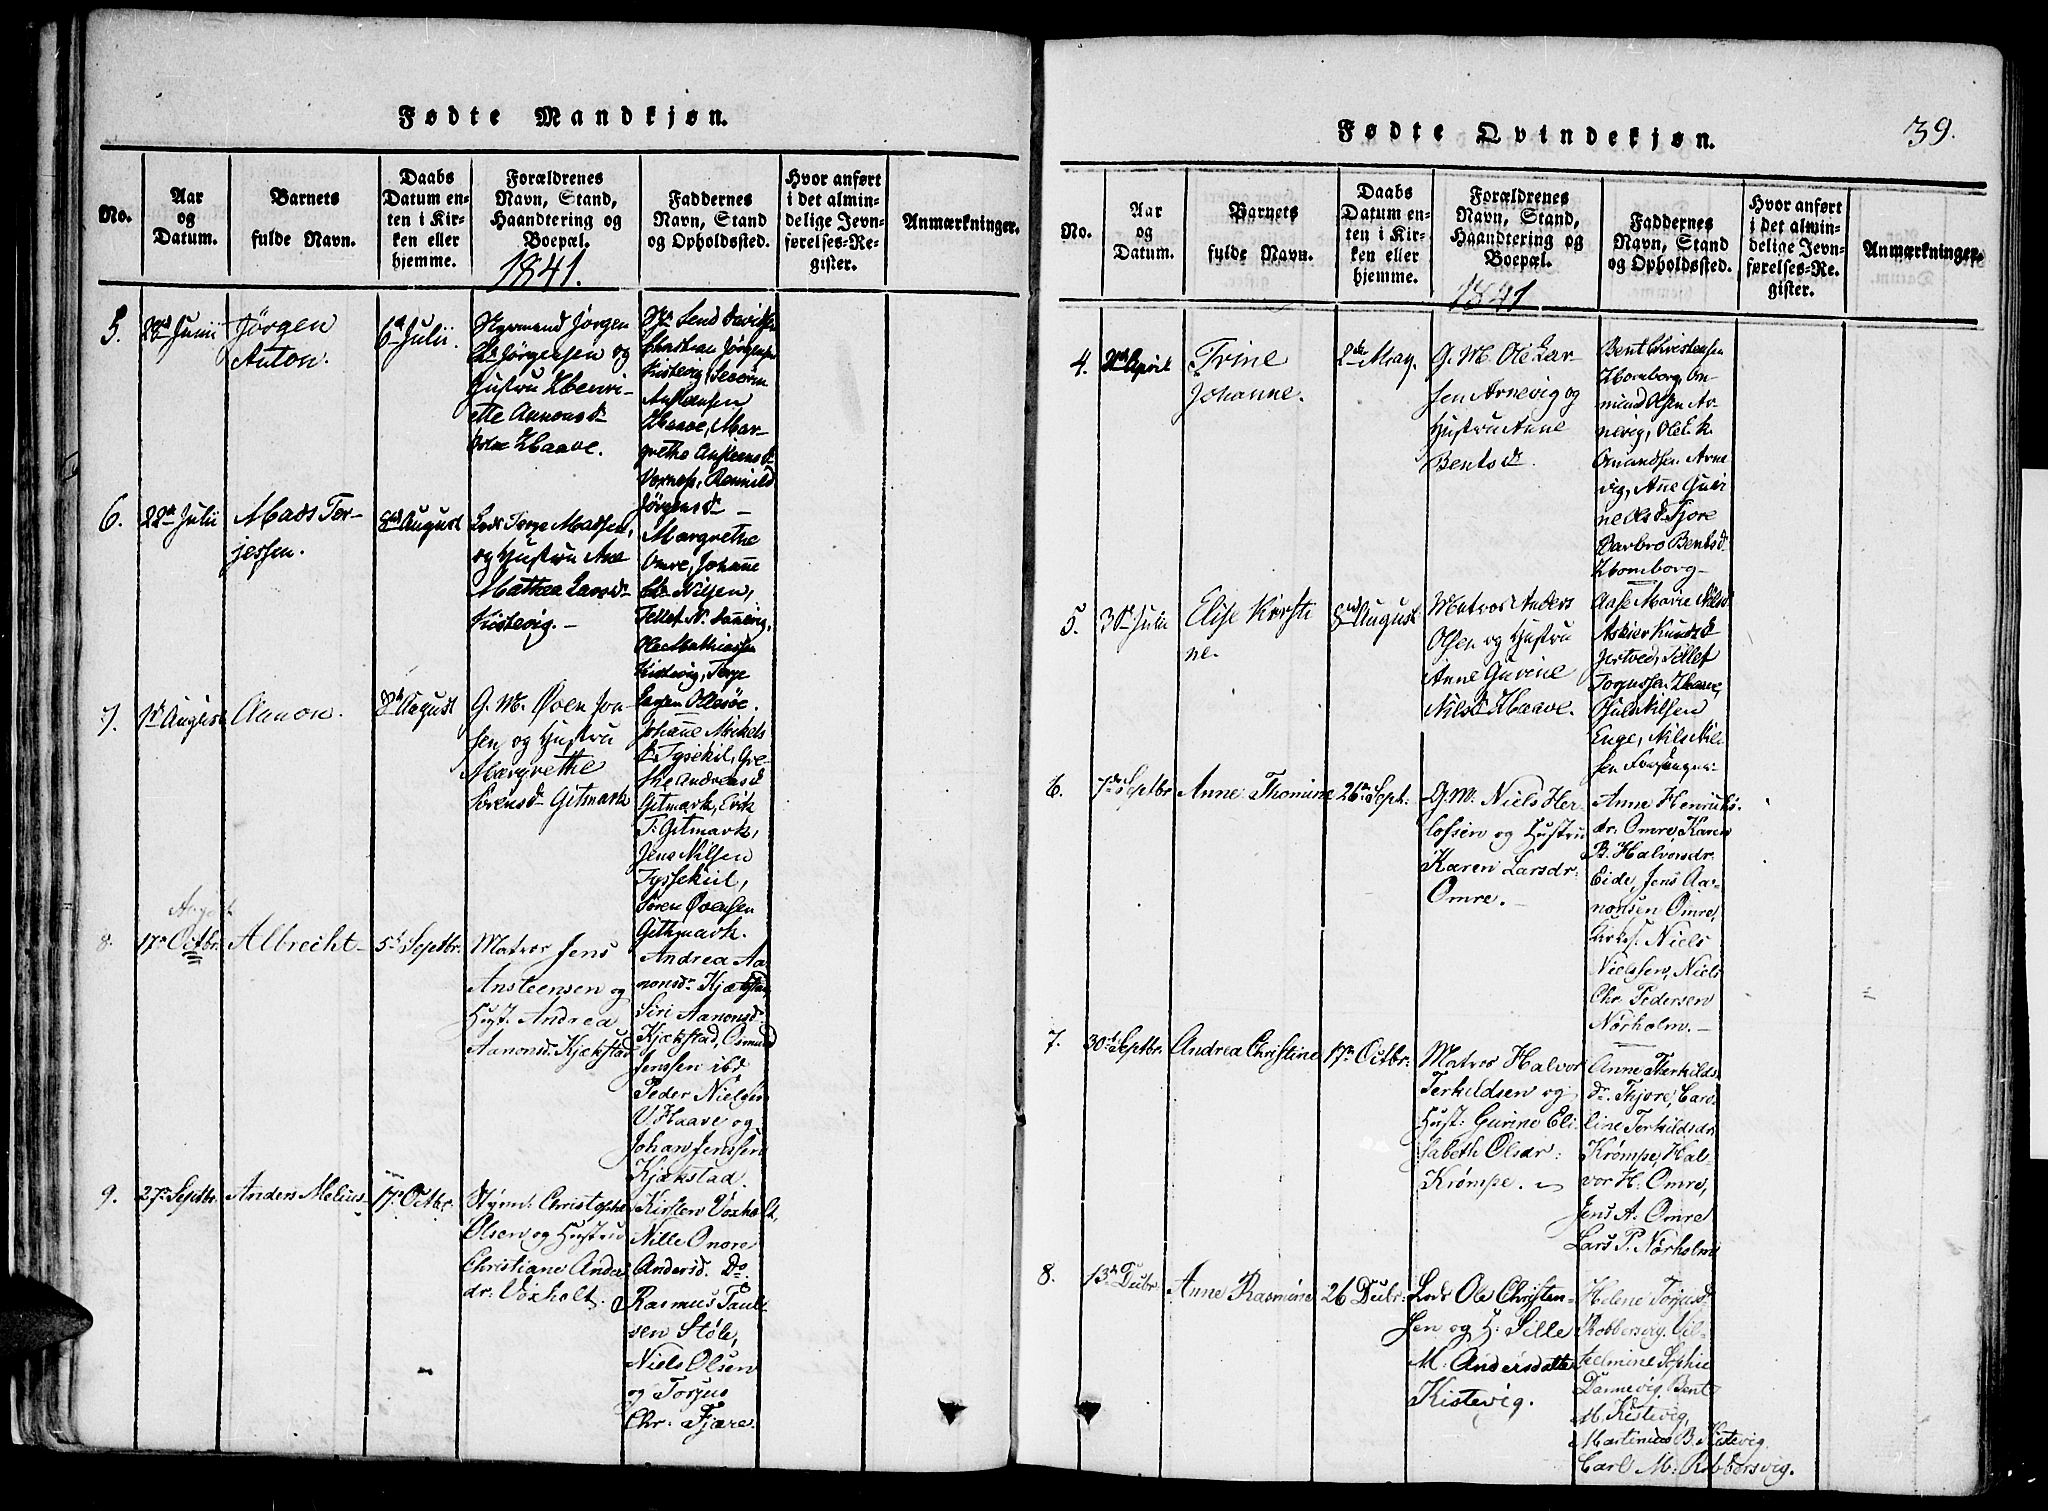 Fødte Mandkjøn.
No.
Aar
og
Datum.
Barnets
fulde Navn.
Daabs
Datum en-
ten i Kir-
ken eller
hjemme.
Forældrenes
Navn, Stand,
Haandtering og
Boepæl.
1841.
Faddernes
Navn, Stand
og Opholdssted.
Hvor anført
i det almin-
delige Jevn-
førelses-Re-
gister.
Anmærkninger.
5.
Junii
Jørgen
Anton.
6te Julii.
Jørgen
Jørgensen og
Hustru Henri-
ette Aanons d.
Haave.
Jørgensen
Kistevig, Severin
Anstensen
Haave, Mar-
grethe Anstens d.
Rannild
Jørgens d.
6.
22de Julii
Mads Ter-
jessen.
8de August
Lods Terge Madsen,
og Hustru Ane
Mathea Lars d.
Kistevig.
Margrethe
Omre, Johanne
Nilsen,
Tellef
Ole Mathiassen
Kistevig, Terge
7.
1st August
Aanon.
8de August
G. M. Øven Jon-
sen og Hustru
Margrethe
Sørens d. Gitmark
Johanne Mickels
d. Tysekil, Gre-
the Andreas d.
Gitmark, Erik
T. Gitmark,
Jens Nilsen
Tyssekiil,
Søren Øvensen
Gitmark.
8.
August
17de Octbr.
Albrecht
5te Septbr.
Matros Jens
Ansteensen og
Hust. Andrea
Aanonsd. Kjækstad
Andrea Aa-
nonsd. Kjækstad,
Siri Aanonsd.
Kjækstad, Osmund
Jenssen ibd
Peder Nielsen
V. Haave og
Johan Jenssen
Kjækstad.
9.
27de Septbr.
Anders Melius
17de Octbr.
Styrm. Christopher
Olsen og Hustru
Christiane Anders
dr. Voxholt.
Kirsten Voxholt,
Nille Omre
Andersd. Do.
Rasmus Taul-
sen Støle,
Niels Olsen
og Torjus
Chr. Fjære.
Fødte Qvindekjøn.
39.
No.
Aar
og
Datum.
Barnets
fulde Navn.
Daabs
Datum en-
ten i Kir-
ken eller
hjemme.
Forældrenes
Navn, Stand,
Haandtering og
Boepæl.
1841
Faddernes
Navn, Stand
og Opholdssted.
Hvor anført
i det almin-
delige Jevn-
førelses-Re-
gister.
Anmærkninger.
4.
April
Trine
Johanne.
2den May.
G. M. Ole Lar-
sen Arnevig og
Hustru Anne
Bents d.
Bent Christensen
Homborg, Om-
mund Olsen Ar-
nevig, Ole
Omundsen Arne
vig, Ane Guri-
ne Ols d. Fjære
Barbro Bents d.
Homborg
5.
3die Julii
Elise Kirsti
ne.
8de August
Matros Anders
Olsen og Hustru
Anne Gurine
Nils d. Haave.
Aase Marie Nils d.
Knuds d.
Tellef
Torjussen Haave,
Nilsen
Enge, Nils Nil-
sen
6.
7de Septbr
Anne Thomine
26de Sept.
G. M. Niels Her-
lofsen og Hustru
Karen Larsdr.
Omre.
Anne Henriks-
dr. Omre, Karen
B. Halvorsdr.
Eide, Jens Aa-
nonsen Omre,
Niels
Nielssen, Niels
Chr. Pedersen
Nørholm.
7.
30te Septbr.
Andrea Christine
17de Octbr.
Matros Halvor
Terkeldsen og
Hust: Gurine Eli
sabeth Olsdr:
Krømpe.
Anne Therkilds-
dr. Fjære, Caro-
line Terkildsdr.
Krømpe, Hal-
vor H. Omre,
Jens A. Omre
Lars P. Nørholm
8.
13de Decbr.
Anne Rasmine
26 Decbr:
Lods Ole Christen-
sen og H. Sille
M. Andersdatter
Kistevig.
Helene Torjusd.
Robbersvig. Vil-
helmine Sophie
Dannevig, Bent
M. Kistevig,
Martinius B. Kistevig.
Carl M. Robbersvig.